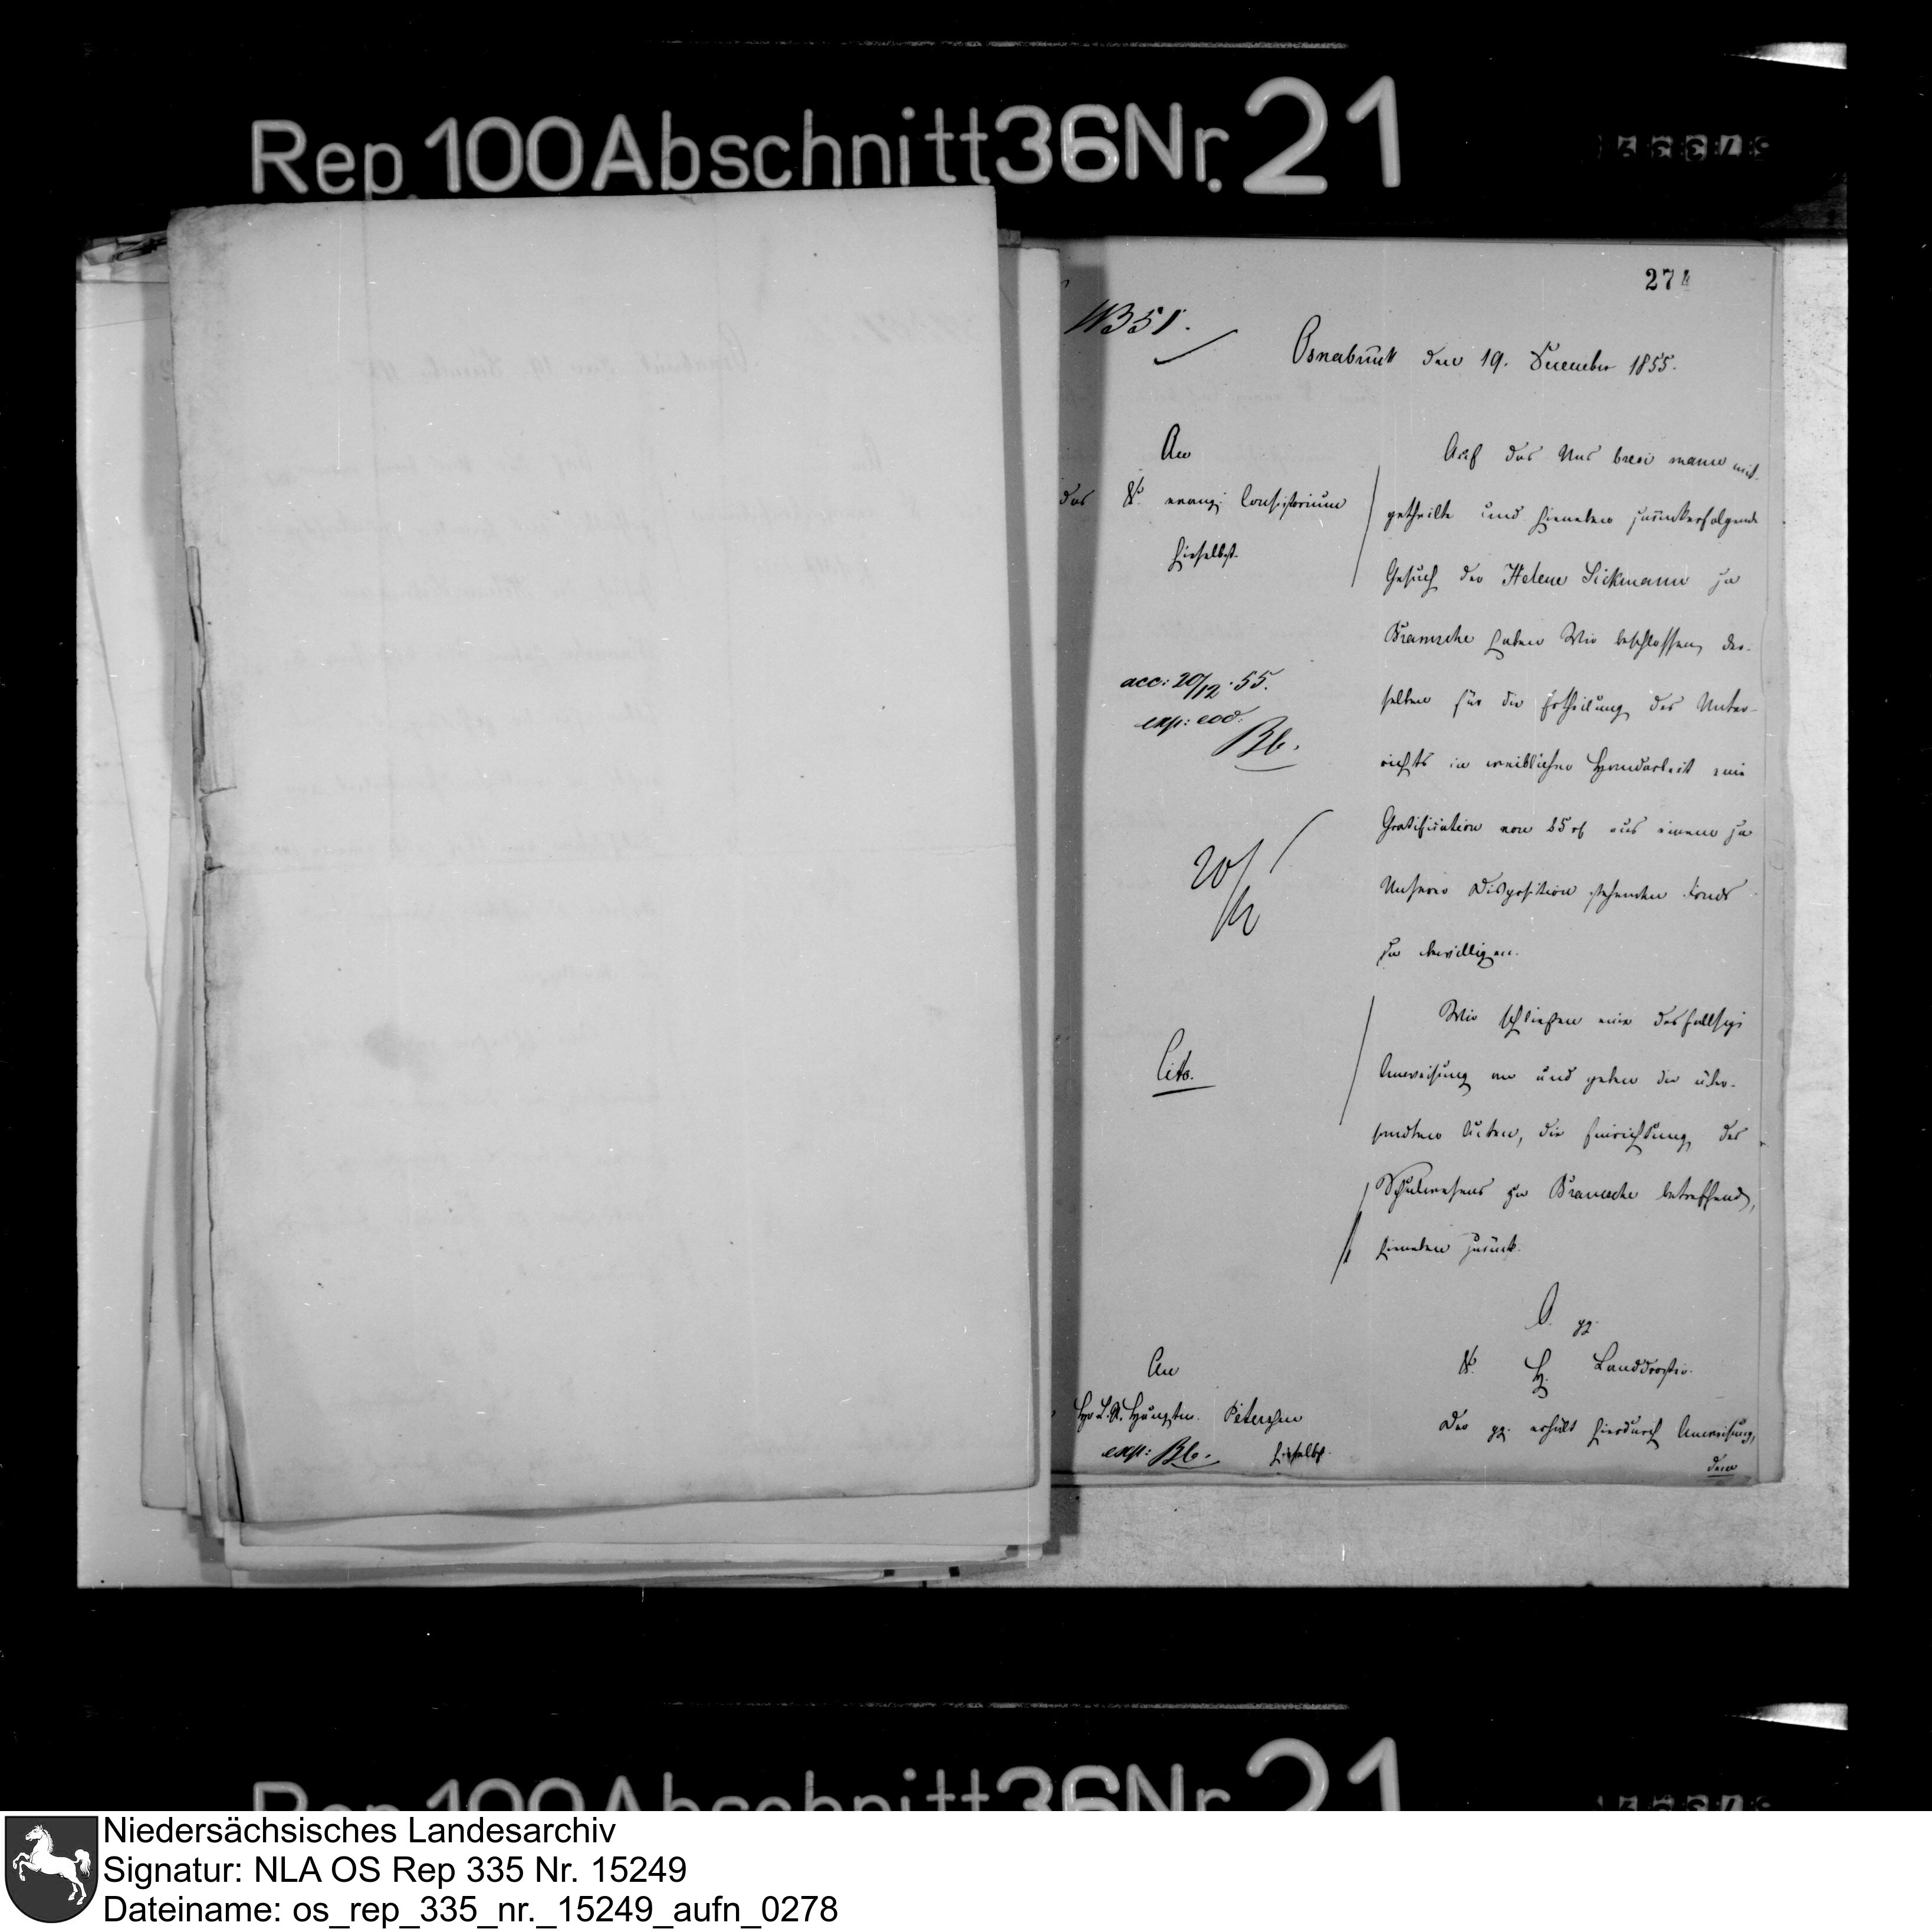 Rep. 100 Abschnitt 36 Nr. 21
274
11351.
Osnabrück den 19. December 1855.
An
das K. evang. Consistorium
hieselbst.
acc: 20/12. 55.
exp: eod.
Bb.
20/12
Auf das Uns brevi manu mit-
getheilte und hieneben zurückerfolgende
Gesuch der Helene Sickmann zu
Bramsche haben Wir beschlossen, der-
selben für die Ertheilung des Unter-
richts in weiblicher Handarbeit eine
Gratification von 25 rf aus einem zu
Unserer Disposition stehenden Fonds
zu bewilligen.
Cito.
Wir schließen eine desfallsige
Anweisung an und geben die über-
sandten Acten, die Einrichtung des
Schulwesens zu Bramsche betreffend,
hieneben zurück.
pp.
K. H. Landdrostei.
An
H. L. R. Petersen
hieselbst.
exp: Bb.
Der pp. erhält hierdurch Anweisung,
dem
Rep. 100 Abschnitt 36 Nr. 21
Niedersächsisches Landesarchiv
Signatur: NLA OS Rep 335 Nr. 15249
Dateiname: os_rep_335_nr._15249_aufn_0278